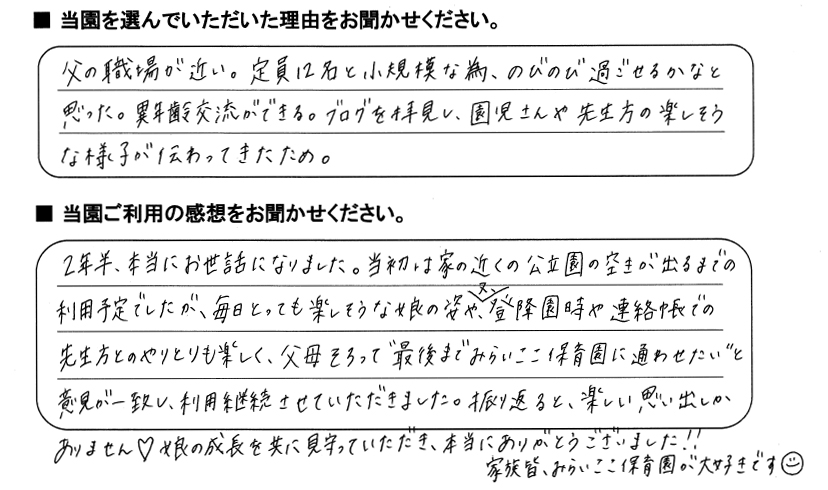 ■ 当園を選んでいただいた理由をお聞かせください。
父の職場が近い。定員12名と小規模な為、のびのび過ごせるかなと
思った。異年齢交流ができる。ブログを拝見し、園児さんや先生方の楽しそう
な様子が伝わってきたため。
■ 当園ご利用の感想をお聞かせください。
2年半、本当にお世話になりました。当初は家の近くの公立園の空きが出るまでの
利用予定でしたが、毎日とっても楽しそうな娘の姿や、登降園時や連絡帳での
先生方とのやりとりも楽しく、父母そろって"最後までみらいここ保育園に通わせたい"と
意見が一致し、利用継続させていただきました。振り返ると、楽しい思い出しか
ありません♡娘の成長を共に見守っていただき、本当にありがとうございました!!
家族皆、みらいここ保育園が大好きです☺